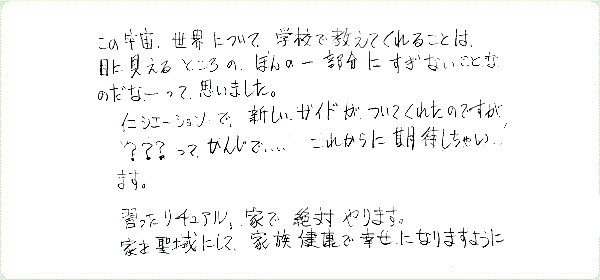 この宇宙、世界について、学校で教えてくれることは、
目に見えるところの、ほんの一部分にすぎないことな
のだなーって、思いました。
イニシエーションで、新しいガイドがついてくれたのですが
???って、かんじで.... これからに期待しちゃい
ます。
習ったリチュアル、家で絶対やります。
家を聖域にして、家族健康で幸せになりますように